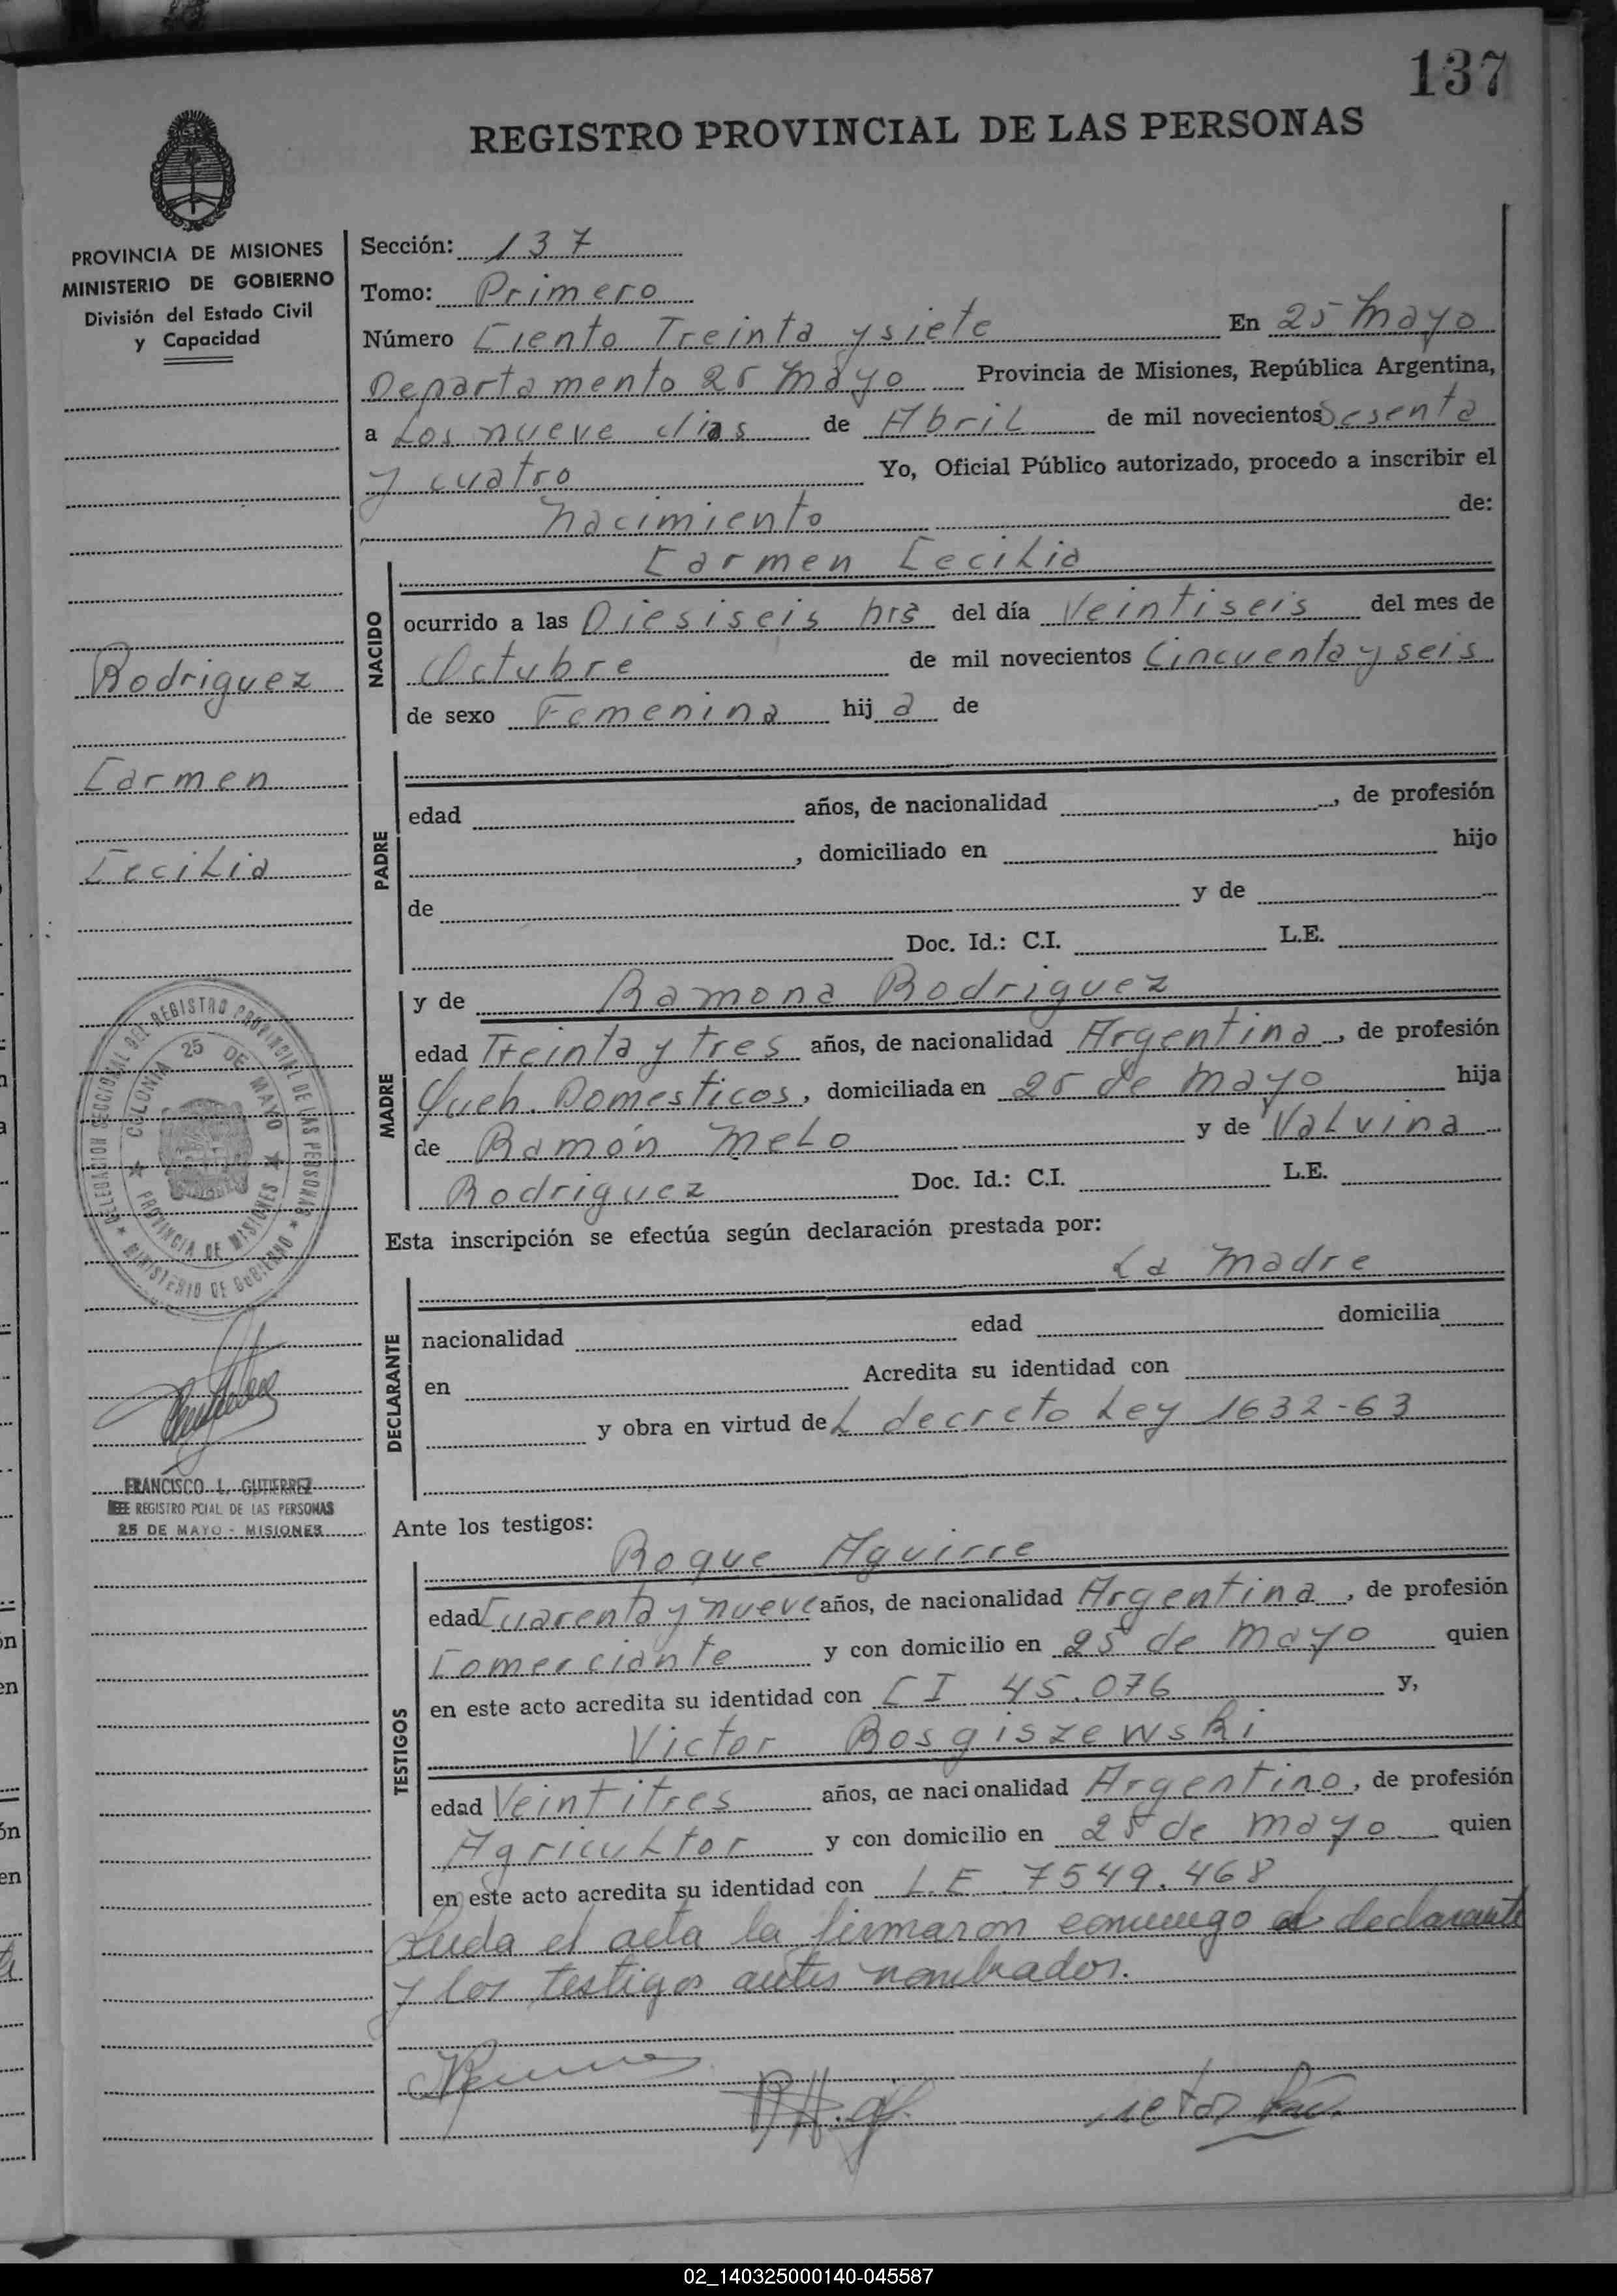 137
REGISTRO PROVINCIAL DE LAS PERSONAS
PROVINCIA DE MISIONES
MINISTERIO DE GOBIERNO
División del Estado Civil
y Capacidad
Rodriguez
Carmen
Cecilia
DELEGACION SECCIONAL DEL REGISTRO PROVINCIAL DE LAS PERSONAS
★ MINISTERIO DE GOBIERNO ★
COLONIA 25 DE MAYO
★ PROVINCIA DE MISIONES ★
FRANCISCO L. GUTIERREZ
JEFE REGISTRO PCIAL. DE LAS PERSONAS
25 DE MAYO - MISIONES
Sección: 137
Tomo: Primero
Número Ciento Treinta y siete En 25 Mayo
Departamento 25 Mayo Provincia de Misiones, República Argentina,
a Los nueve dias de Abril de mil novecientos Sesenta
y cuatro Yo, Oficial Público autorizado, procedo a inscribir el
nacimiento de:
NACIDO
Carmen Cecilia
ocurrido a las Diesiseis hrs del día Veintiseis del mes de
Octubre de mil novecientos Cincuenta y seis
de sexo Femenina hija de
PADRE
edad años, de nacionalidad , de profesión
, domiciliado en hijo
de y de
Doc. Id.: C.I. L.E.
MADRE
y de Ramona Rodriguez
edad Treinta y tres años, de nacionalidad Argentina, de profesión
Queh. Domesticos, domiciliada en 25 de Mayo hija
de Ramón Melo y de Valvina
Rodriguez Doc. Id.: C.I. L.E.
Esta inscripción se efectúa según declaración prestada por:
DECLARANTE
La Madre
nacionalidad edad domicilia
en Acredita su identidad con
y obra en virtud del decreto Ley 1632-63
Ante los testigos:
TESTIGOS
Roque Aguirre
edad Cuarenta y nueve años, de nacionalidad Argentina, de profesión
Comerciante y con domicilio en 25 de Mayo quien
en este acto acredita su identidad con CI 45.076 y,
Victor Bosgiszewski
edad Veintitres años, de nacionalidad Argentino, de profesión
Agricultor y con domicilio en 25 de Mayo quien
en este acto acredita su identidad con L.E. 7549.468
Leida el acta la firmaron conmigo el declarante
y los testigos antes nombrados.
02_140325000140-045587